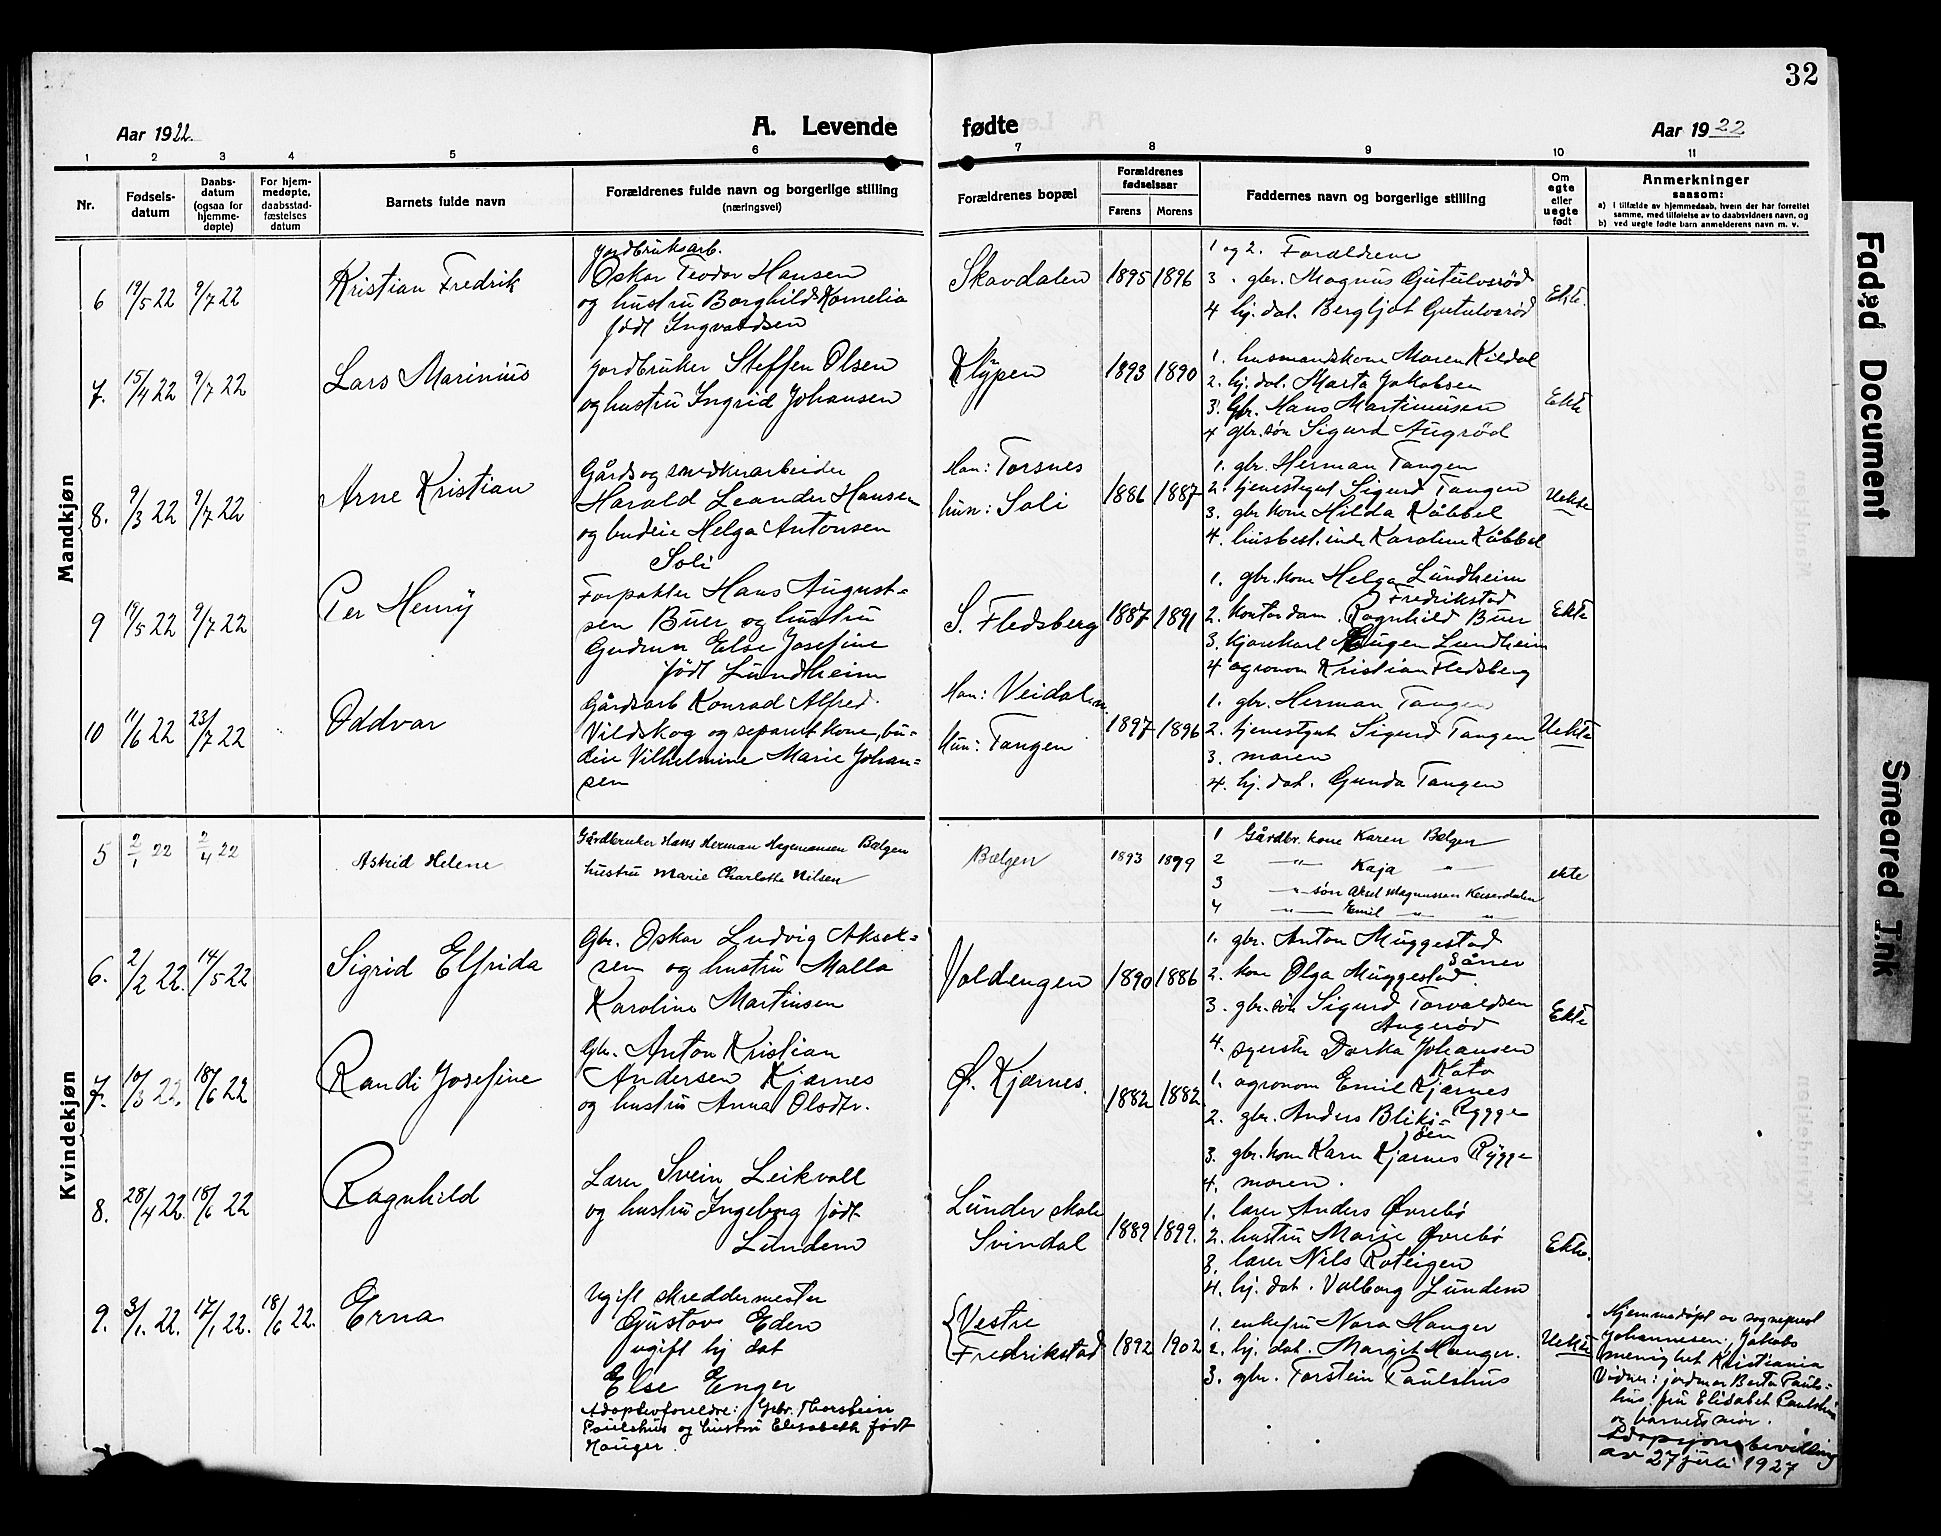 32
Aar 1922.
A. Levende
fødte
Aar 1922
1 2 3 4 5 6 7 8 9 10 11
Nr.
Fødsels-
datum
Daabs-
datum
(ogsaa for
hjemme-
døpte)
For hjem-
medøpte,
daabsstad-
fæstelses
datum
Barnets fulde navn
Forældrenes fulde navn og borgerlige stilling
(næringsvei)
Forældrenes bopæl
Forældrenes
fødselsaar
Farens Morens
Faddernes navn og borgerlige stilling
Om
egte
eller
uegte
født
Anmerkninger
saasom:
a) i tilfælde av hjemmedaab, hvem der har forrettet
samme, med tilføielse av to daabsvidners navn, og
b) ved uegte fødte barn anmelderens navn m. v.
Mandkjøn
6 19/5 22 9/7 22
Kristian Fredrik
Jordbruksarb.
Oskar Teodor Hansen
og hustru Borghild Kornelia
født Ingvaldsen
Skavdalen
1895 1896
1 og 2. Forældrene
3. gbr. Magnus Gutulvsrød
4 hj. dat. Bergljot Gutulvsrød
Ekte.
7. 15/4 22 9/7 22
Lars Marinius
Jordbruker Steffen Olsen
og hustru Ingrid Johansen
Klypen
1893 1890
1. husmandskone Maren Kildal
2. hj. dat. Marta Jakobsen
3. Gbr. Hans Martinusen
4 gbr. søn Sigurd Augrød
Ekte
8. 9/3 22 9/7 22
Arne Kristian
Gårds og snedkerarbeider
Harald Leander Hansen
og budeie Helga Antonsen
Soli
Han: Torsnes
hun: Soli
1886 1887
1. gbr. Herman Tangen
2. tjenestegut Sigurd Tangen
3. gbr kone Hilda Kåbbel
4. husbest.inde Karoline Kåbbel
Uekte
9 19/5 22 9/7 22
Per Henry
Forpakter Hans August-
sen Buer og hustru
Gudrun Else Josefine
født Lundheim
S. Fledsberg
1887 1891
1. gbr. kone Helga Lundheim
Fredrikstad
2. kontordam. Ragnhild Buer
3. Haugen Lundheim
4 agronom Kristian Fledsberg
Ekte
10 11/6 22 23/7 22
Oddvar
Gårdsarb Konrad Alfred
Vildskog og separert kone, bu-
deie Vilhelmine Marie Johan-
sen
Han: Veidalen
Hun: Tangen
1897 1896
1. gbr. Herman Tangen
2. tjenestgut Sigurd Tangen
3. moren
4. hj. dat. Gunda Tangen
Uekte
Kvindekjøn
5 2/1 22 2/4 22
Astrid Helene
Gårdbruker Hans Herman Magnussen Bælgen
hustru Marie Charlotte Nilsen
Bælgen
1893 1899
1 Gårdbr. kone Karen Bælgen
2 —"— Kaja "
3 —"— søn Aksel Magnussen Keiserdalen
4 —"— Emil " "
ekte
6. 2/2 22. 14/5 22
Sigrid Elfrida
Gbr. Oskar Ludvig Aksel-
sen og hustru Malla
Karoline Martinsen
Voldengen
1890 1886
1. gbr. Anton Muggestad
Såner
2. kone Olga Muggestad.
3. gbr. søn Sigurd Torvaldsen
Augerød
4. syerske Dorka Johansen
Ekte
7. 10/3 22. 18/6 22
Randi Josefine
Gbr. Anton Kristian
Andersen Kjærnes
og hustru Anna Olsdtr.
Ø. Kjærnes.
1882 1882
1. agronom Emil Kjærnes
2. gbr. Anders Bliks- Rygge
øen
3. gbr. kone Karn Kjærnes Rygge
4. moren.
8. 28/4 22. 18/6 22
Ragnhild
Lærer Svein Leikvoll
og hustru Ingeborg født
Lundem
Lunder skole
Svindal
1889 1899.
1. lærer Anders Øvrebø
2. hustru Marie Øvrebø
3. lærer Nils Roteigen
4. hj. dat. Valborg Lundem
Ekte.
9. 3/1. 22. 17/1. 22. 18/6 22.
Erna
Ugift skreddermester
Gustav Eden
ugift hj dat
Else Enger
Adoptivforeldre: Gbr. Thorstein
Paulshus og hustru Elisabeth født
Hauger.
Vestre
Fredrikstad
1892 1902
1. enkefru Nora Hauger
2. hj. dat. Margit Hauger.
3. gbr. Torstein Paulshus
Uekte
Hjemmedøpt av sogneprest
Johannesen, Jakobs
menighet Kristiania
Vidner: jordmor Berta Pauls-
hus. fru Elisabet Paulshus
og barnets mor.
Adopsjonsbevilling
av 27 juli 1927
Faded Document
Smeared Ink